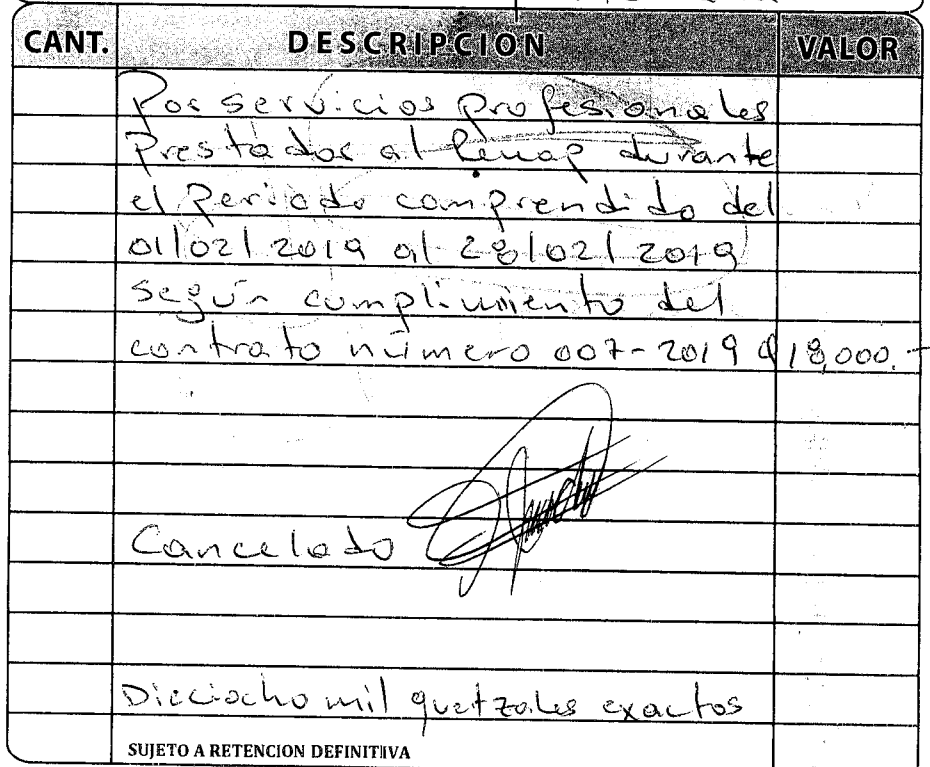 CANT. DESCRIPCION VALOR
Por servicios profesionales
Prestados al Renap durante
el Periodo comprendido del
01/02/2019 al 28/02/2019
según cumplimiento del
contrato número 007-2019 Q18,000.-
Cancelado
Dieciocho mil quetzales exactos
SUJETO A RETENCION DEFINITIVA